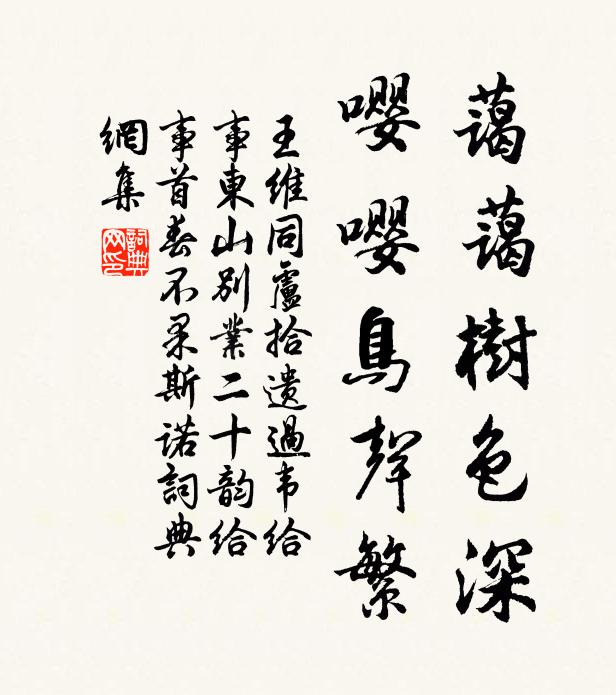 藹藹樹色深
嚶嚶鳥聲繁
王維同盧拾遺過韦给
事東山別業二十韵给
事首春不果斯诺詞典
網集
詞典
网印